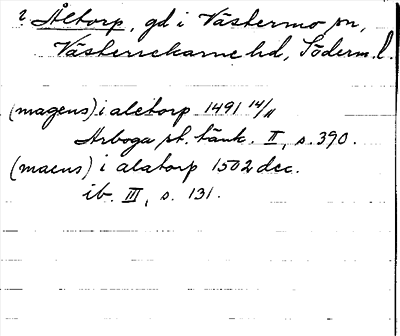 ? Åltorp, gd i Västermo sn,
Västerrekarne hd, Söderm. l.
(magens) i aletorp 1491 14/11
Arboga st. tänk. II, s. 390.
(maens) i alatorp 1502 dec.
ib. III, s. 131.